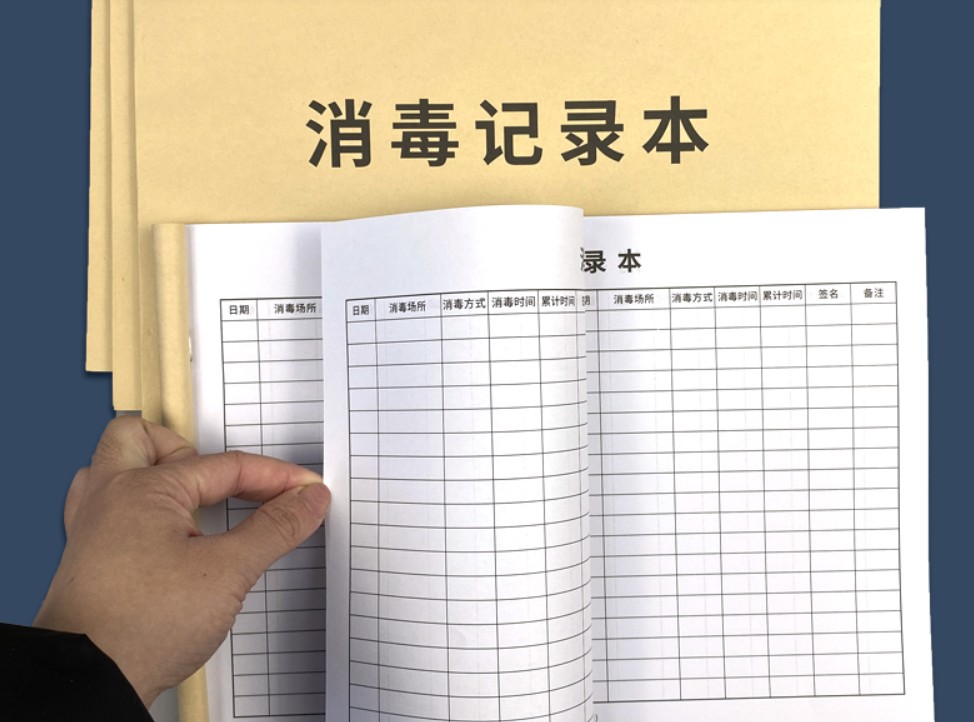 消毒记录本
录 本
日期 消毒场所
日期 消毒场所 消毒方式 消毒时间 累计时间
消毒场所 消毒方式 消毒时间 累计时间 签名 备注